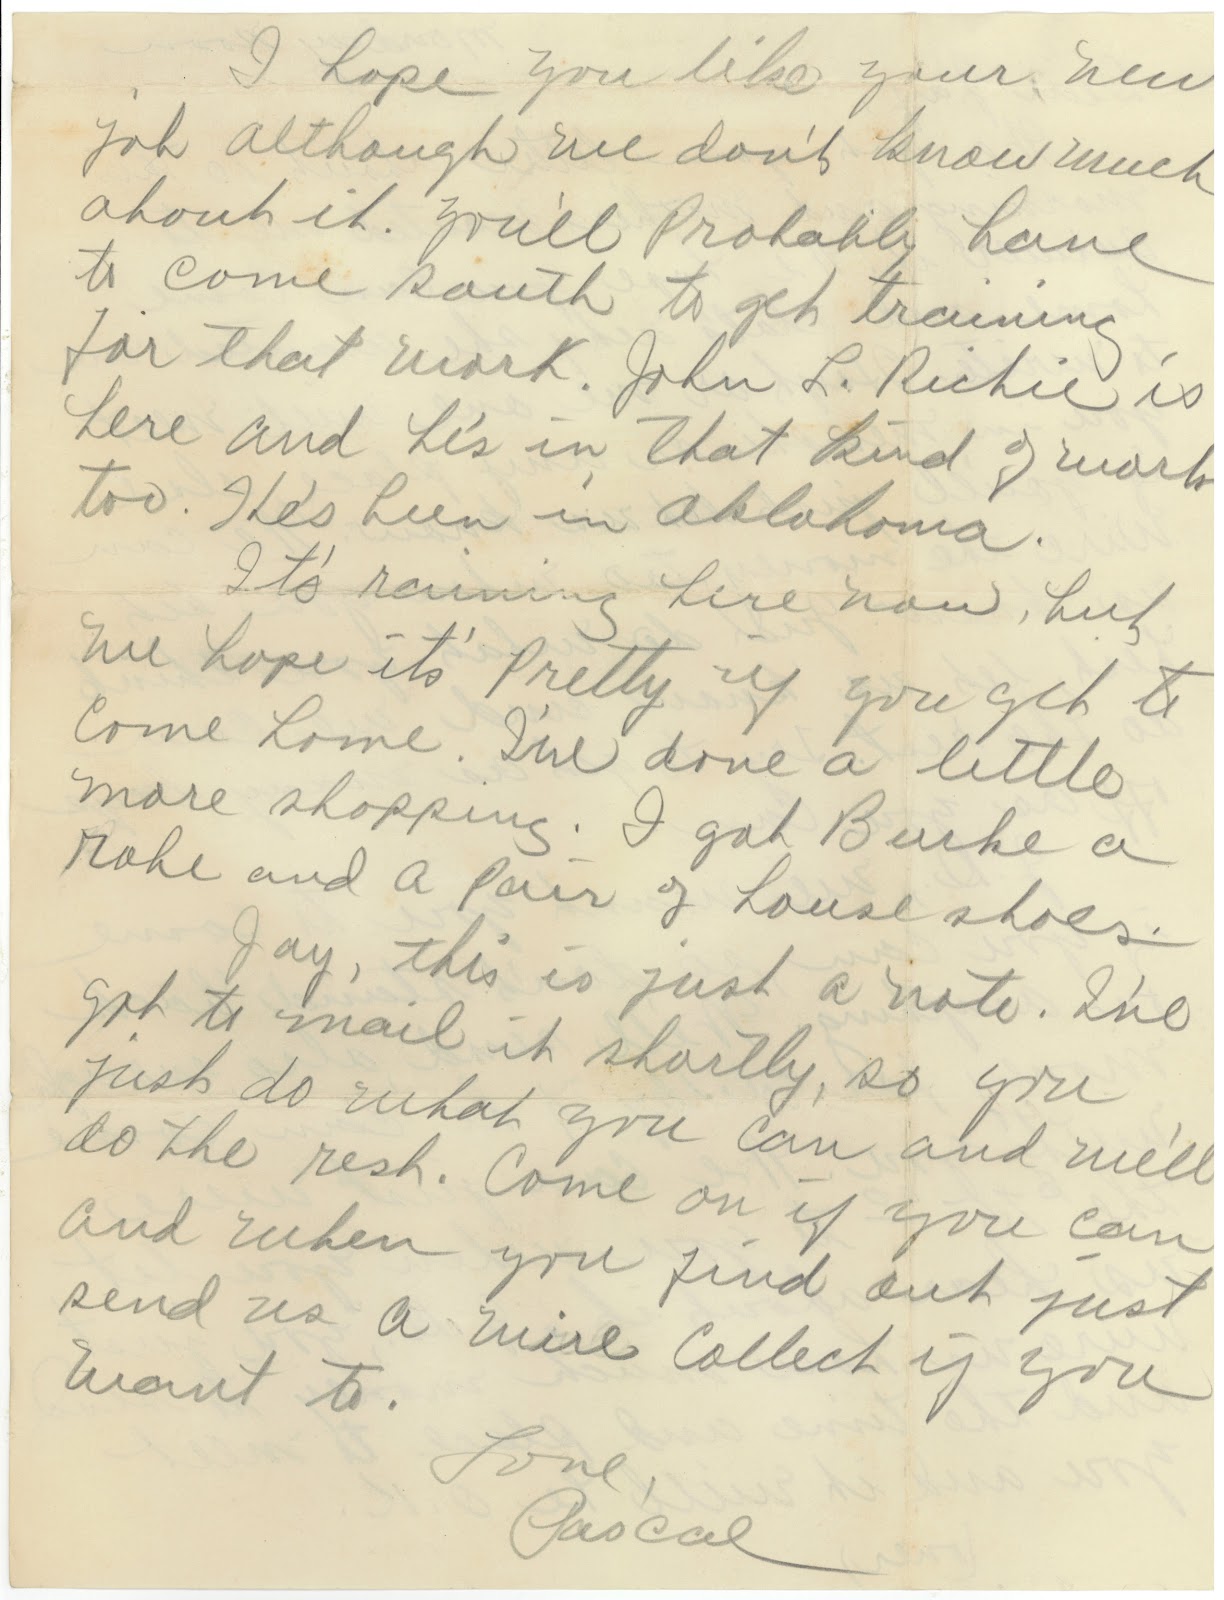 I hope you like your new
job although we don't know much
about it. You'll Probably have
to come south to get training
for that work. John L. Richie is
here and he's in that kind of work
too. He's been in Oklahoma.
It's raining here now, but
we hope it's Pretty if you get to
come home. I've done a little
more shopping. I got Burke a
Robe and a Pair of house shoes.
Jay, this is just a note. I've
got to mail it shortly, so you
just do what you can and we'll
do the rest. Come on if you can
and when you find out just
send us a wire Collect if you
want to.
Love,
Pascal